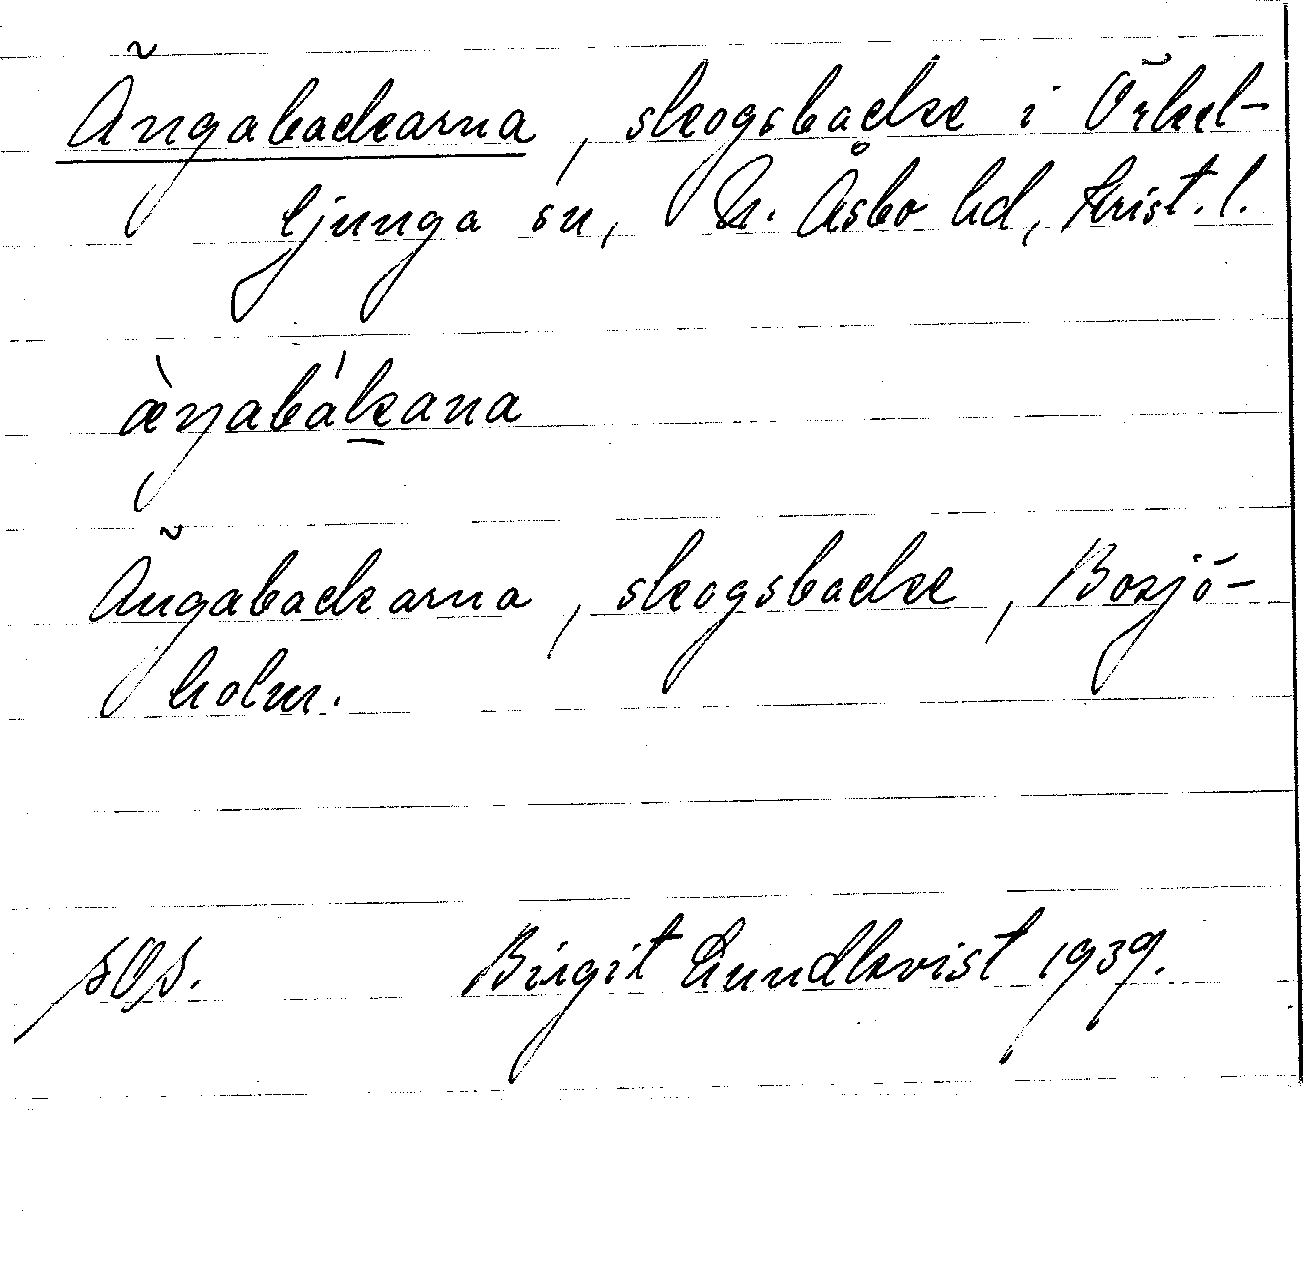 Ängabackarna, skogsbacke i Örkel-
ljunga sn, N. Åsbo hd, Krist. l.
æ̀ŋabák̠ana
Ängabackarna, skogsbacke, Bosjö-
holm.
Birgit Lundkvist 1939.